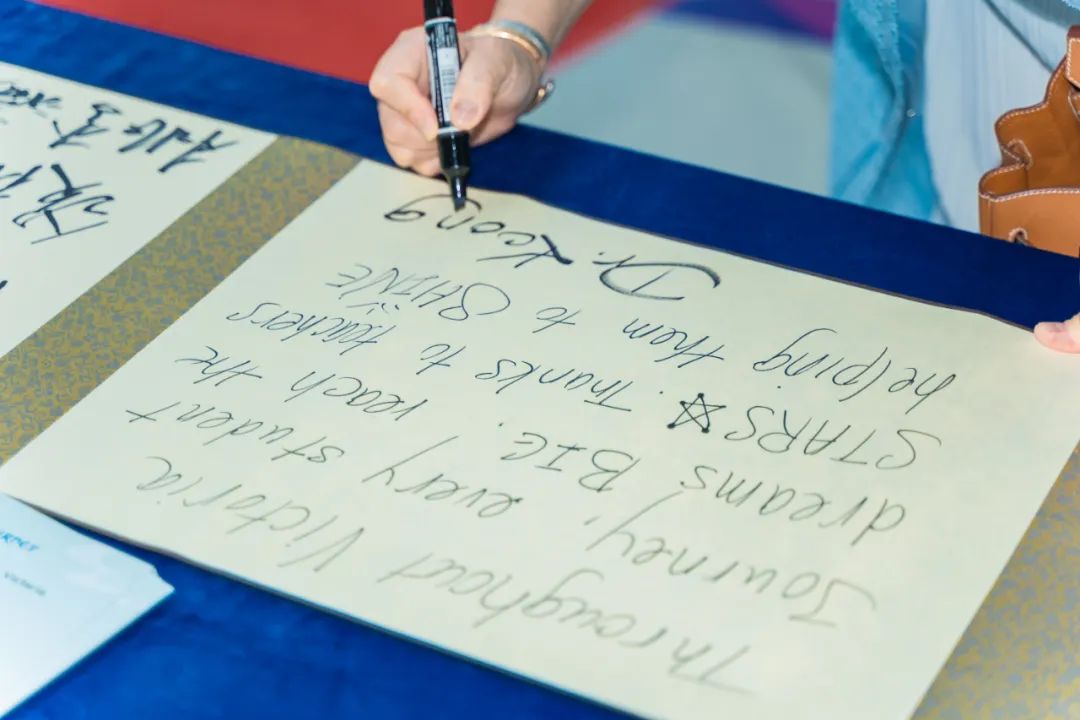 Throughout Victoria
Journey, every student
dreams BIG. reach the
STARS☆. Thanks to teachers
helping them to SHINE
Dr. Keong
Victoria